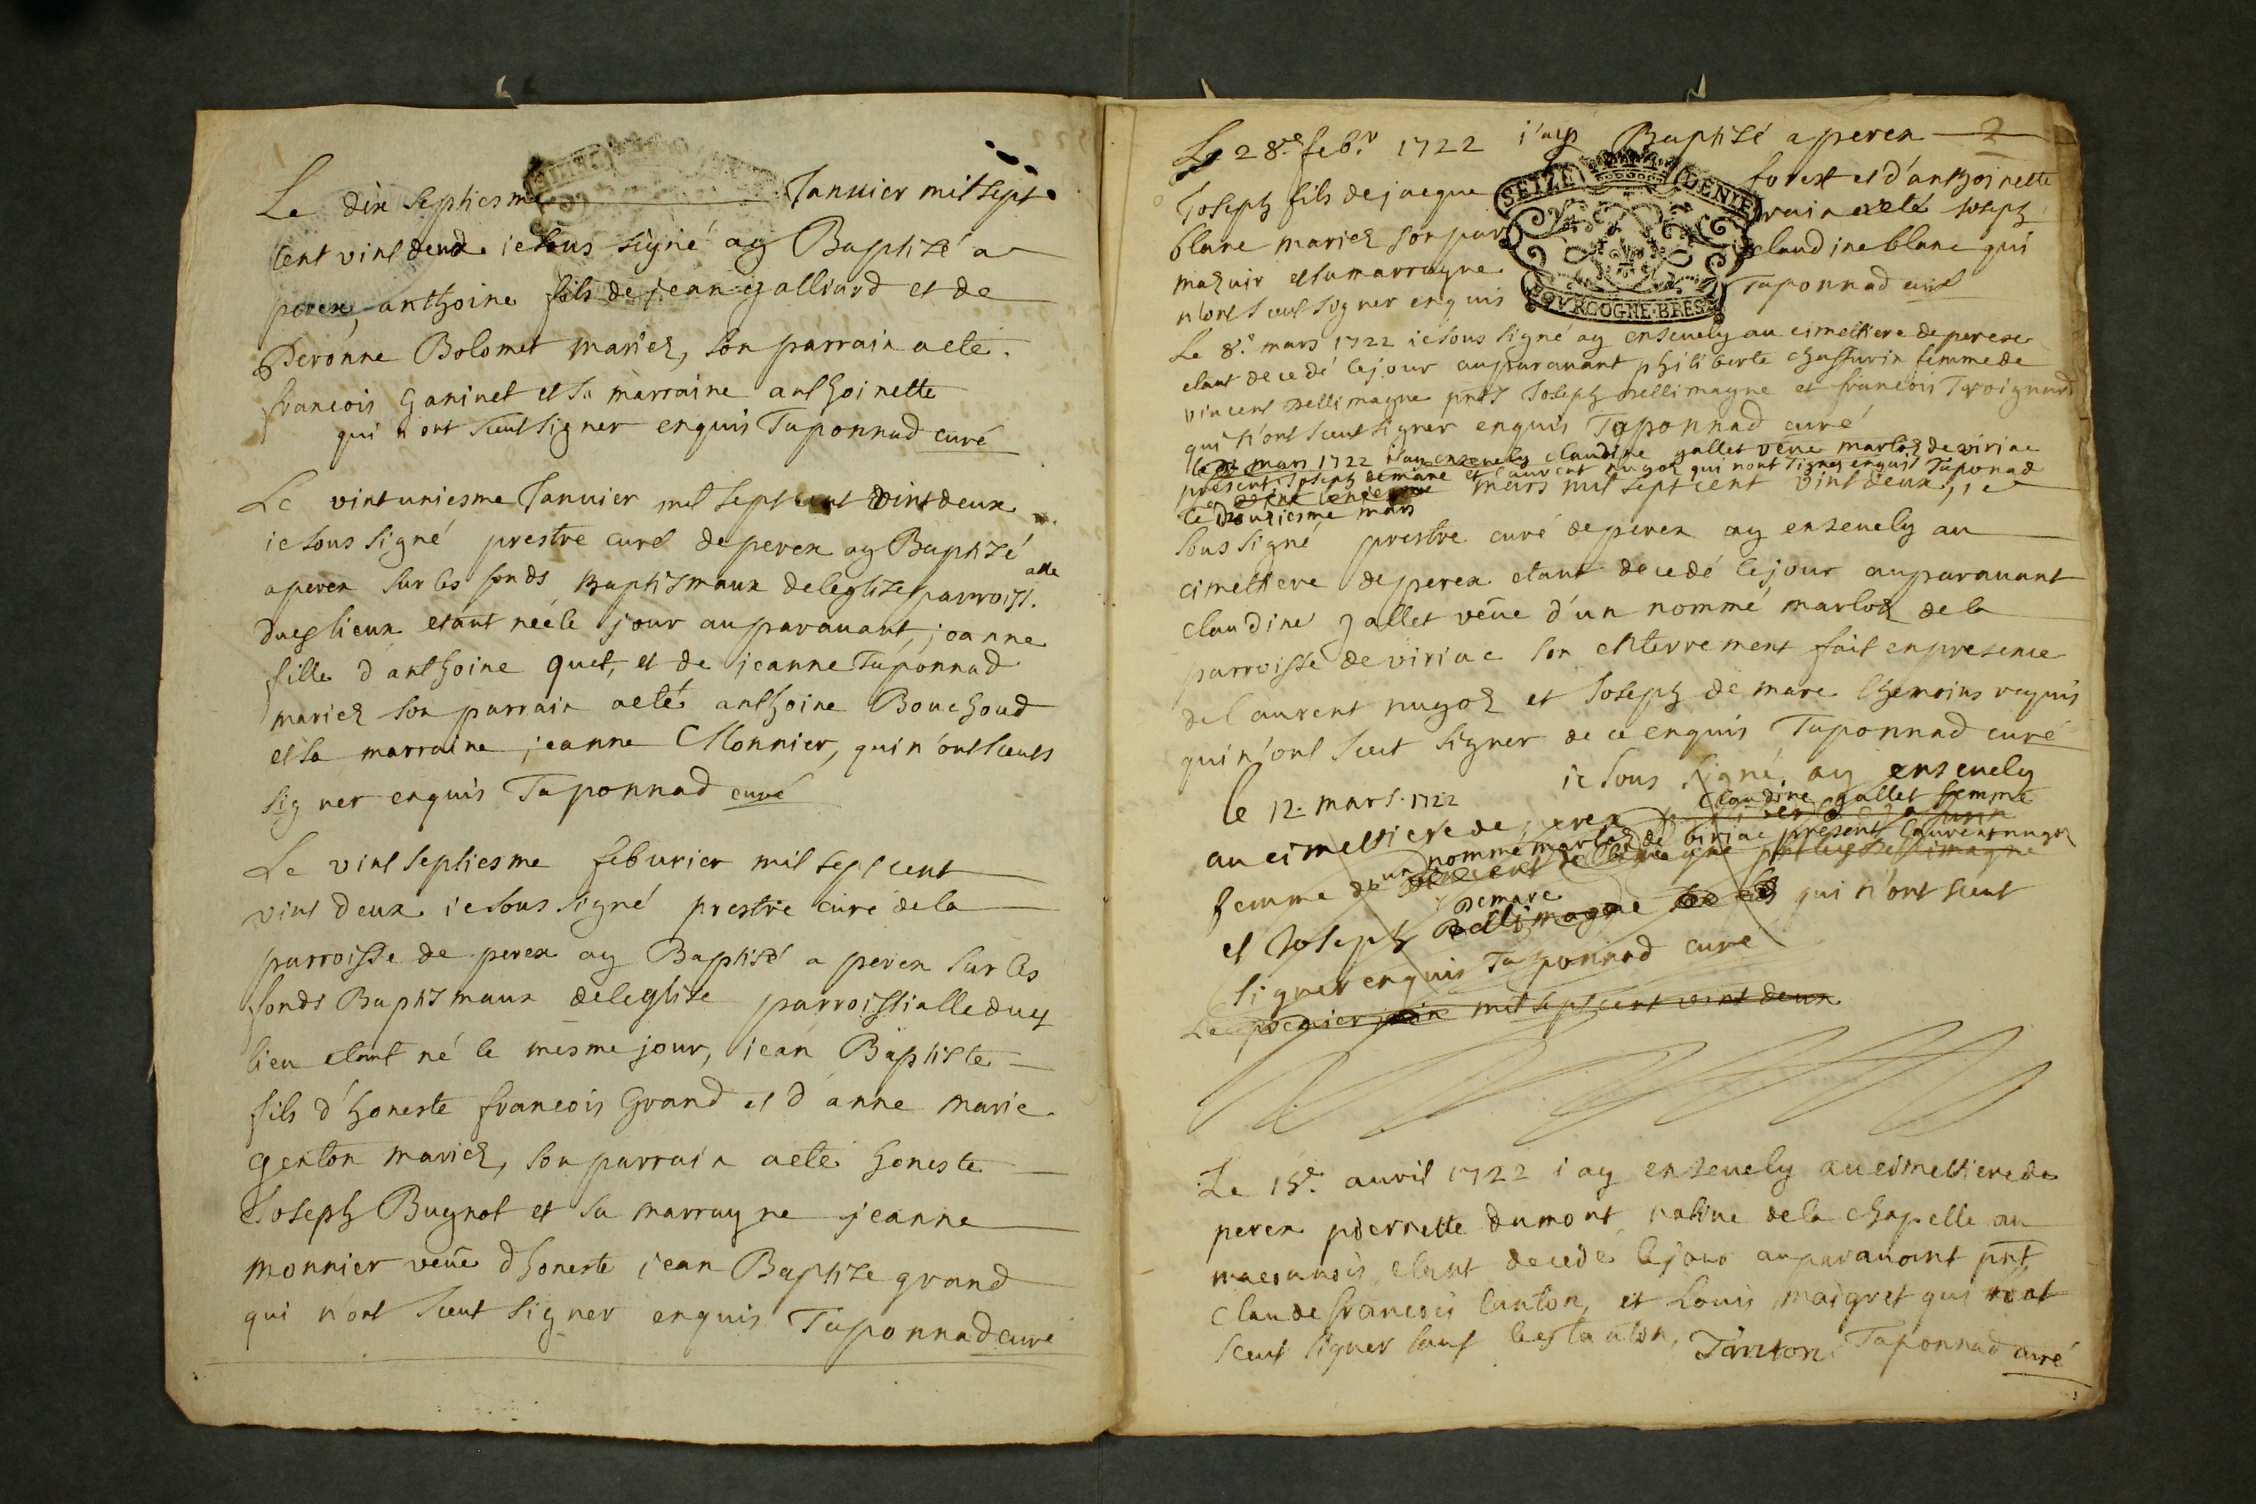 Le dix septiesme Januier mil sept
cent vint deux ie sous signé ay Baptizé a
perex, anthoine fils de jean galliard et de
Peronne Bolomet mariez, son parrain a eté
francois Ganinet et sa marraine anthoinette
qui n'ont sceut signer enquis Taponnad curé
Le vint uniesme Januier mil sept cent vint deux
ie sous signé prestre curé de perex ay Baptizé
a perex sur les fonds Baptismaux de leglise parroiss. alle
duq lieux etant néé le jour auparauant, joanne
fille d'anthoine quet, et de jeanne Taponnad
mariez son parrain a eté anthoine Bouchoud
et sa marraine jeanne Monnier, qui n'ont sceuts
signer enquis Taponnad curé
Le vint septiesme feburier mil sept cent
vint deux ie sous signé prestre curé de la
parroisse de perex ay Baptisé a perex sur les
fonds Baptismaux de leglise parroissialle duq
lieu etant né le mesme jour, jean Baptiste
fils d'honeste francois Grand et d'anne marie
genton mariez, son parrain a eté honeste
Joseph Bugnot et sa marrayne jeanne
monnier veûe dhoneste jean Baptize grand
qui n'ont sceut signer enquis Taponnad curé
2
Le 28.e feb.r 1722 i'ay Baptizé a perex
Joseph fils de jacque forest et d'anthoinette
blanc mariez son parrain a eté Joseph
mazuir et sa marrayne claudine blanc qui
n'ont sceut signer enquis Taponnad curé
SEIZE DENIE
BOVRGOGNE·BRESSE
Le 8.e mars 1722 ie sous signé ay enseuely au cimettiere de perex
etant decedé le jour auparauant philiberte chassurin femme de
vincent Bellimagne pnts Joseph Bellimagne et francois
qui n'ont sceut signer enquis Taponnad curé
mars 1722 i'ay enseuely claudine gallet veûe marloz de viriac
present Joseph demare et laurent nugoz qui n'ont signez enquis Taponad
mars mil sept cent vint deux, ie
le douziesme mars
sous signé prestre curé de perex ay enseuely au
cimettiere de perex etant decedé le jour auparauant
claudine gallet veûe d'un nommé marloz de la
parroisse de viriac son enterrement fait en presence
de laurent nugoz et Joseph de mare themoins requis
qui n'ont sceut signer de ce enquis Taponnad curé
le 12. mars. 1722 ie sous signé ay enseuely
au cimettiere de perex claudine gallet femme
femme d'un nommé marloz de viriac present laurent nugoz
et Joseph Bellimagne Demare qui n'ont sceut
signer enquis Taponnad curé
Le premier mil sept cent vint deux
Le 15.e auril 1722 i'ay enseuely au cimettiere de
perex pierrette dumont natiue de la chapelle au
maconois etant decedé le jour auparauant pnt
Claude francois tanton, et Louis maigret qui n'ont
sceut signer sauf led tanton, Tanton Taponnad curé